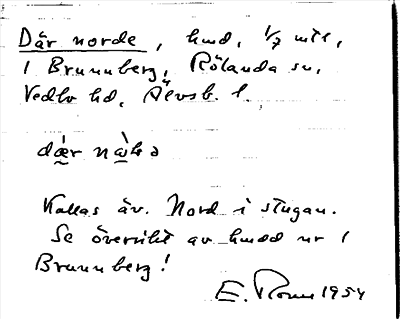 Där norde, hmd, 1/7 mtl,
1 Brunnberg, Rölanda sn,
Vedbo hd, Älvsb. l.
Kallas äv. Nord i stugan.
Se översikt av hmdd nr 1
Brunnberg!
E. 1954